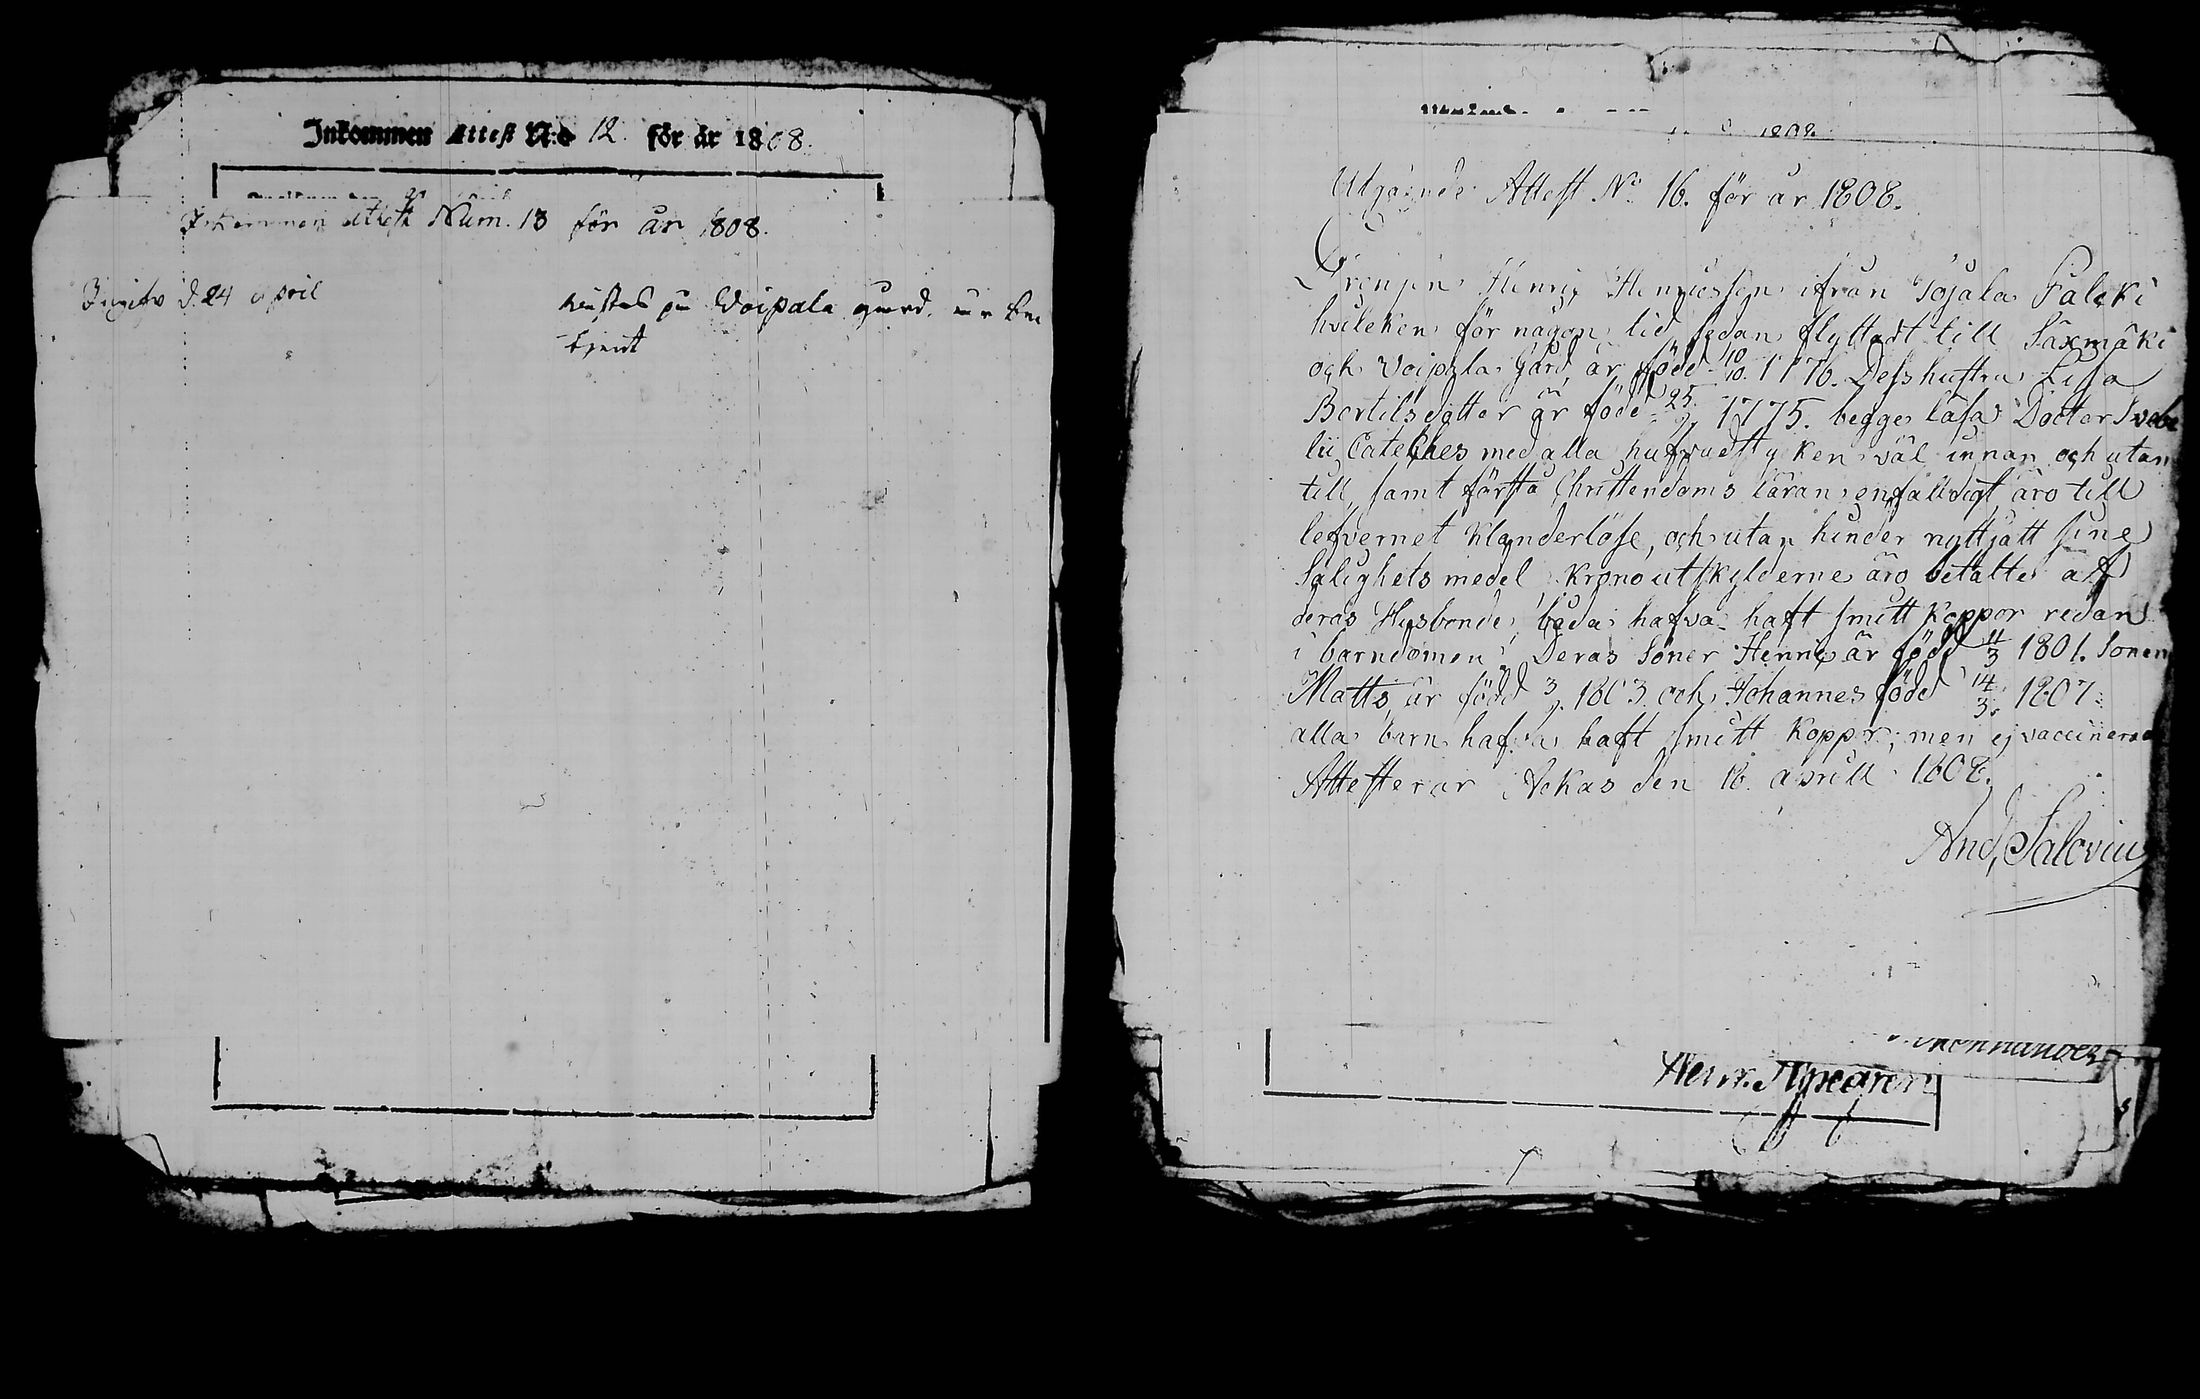 Inkommen Attest N:o 12. för år 1808.
Inkommen Attest Num. 13 för år 1808.
d. 24 april
på Voipala gård
1808.
Utgående Attest No 16. för år 1808.
Drengen Henric Henricsson ifrån Tojala
hvilcken för någon tid sedan flyttadt till Säxmäki
och Voipala Gård är född 10/10. 1776. Dess hustru Lisa
Bertilsdotter är född 25/9 1775. begge läsa Doctor Svebe
lii Cateches med alla hufvudstycken väl innan och utan
till, samt första Christendoms läran enfaldigt äro till
lefvernet Klanderlöse, och utan hinder nyttjatt sine
Salighets medel Kronoutskylderne äro betalte af
deras Husbonde, båda hafva haft smitt Koppor redan
i barndomen. Deras Söner Henric är född 11/3 1801. Sonen
Matts är född 3/9. 1803. och Johannes född 14/3. 1807:
alla barn hafva haft smitt Koppor; men ej vaccinerad
Attesterar Ackas den 18. aprill 1808.
And, Salovius
Henr.